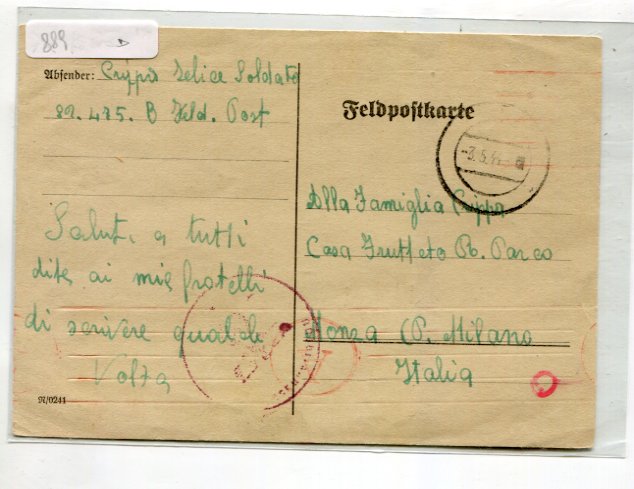 889
Absender: Crippa Felice Soldato
82.475. B Feld. Post
Saluti a tutti
dite ai mie fratelli
di scrivere qualche
Volta
N/0241
Feldpostkarte
-3.5.44
Alla Famiglia Crippa
Casa Frutteto R. Parco
Monza (P. Milano
Italia